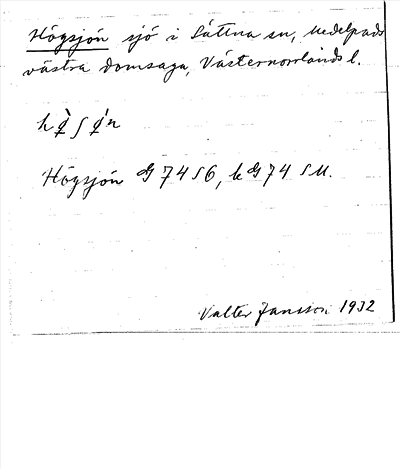 Högsjön sjö i Sättna sn, Medelpads
västra domsaga, Västernorrlands l.
Högsjön G 74 S6, k G 74 SM.
Valter Jansson 1932